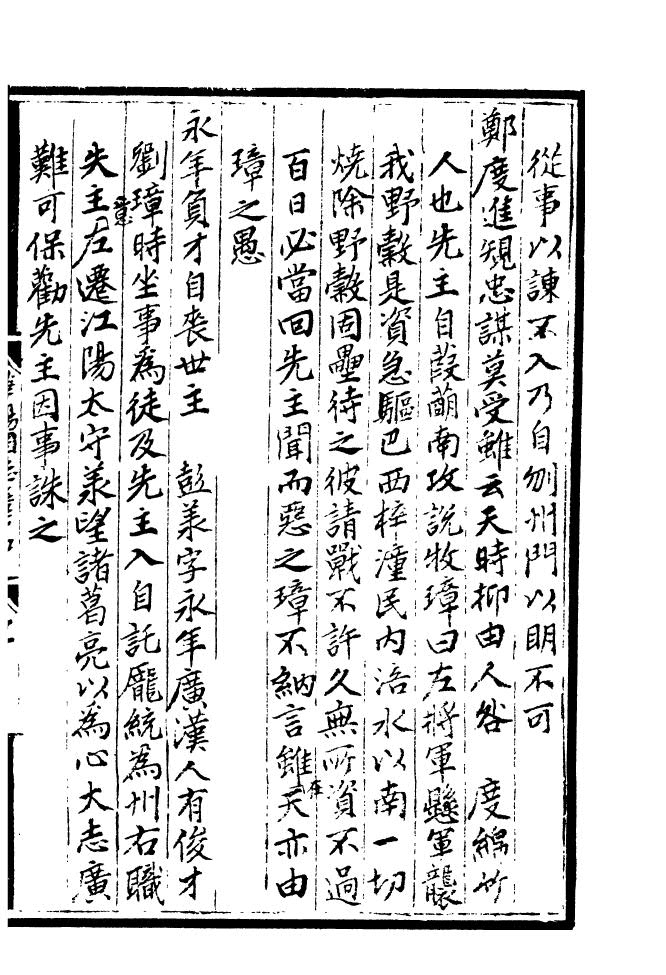 從事以諫不入乃自刎州門以明不可
鄭度進規忠謀莫受雖云天時抑由人咎　度綿竹
人也先主自葭萌南攻說牧璋曰左將軍懸軍襲
我野穀是資急驅巴西梓潼民內涪水以南一切
燒除野穀固壘待之彼請戰不許久無所資不過
百日必當回先主聞而惡之璋不納言雖在天亦由
璋之愚
永年負才自喪世主　彭羕字永年廣漢人有俊才
劉璋時坐事為徒及先主入自託龐統為州右職
先主意左遷江陽太守羕望諸葛亮以為心大志廣
難可保勸先主因事誅之